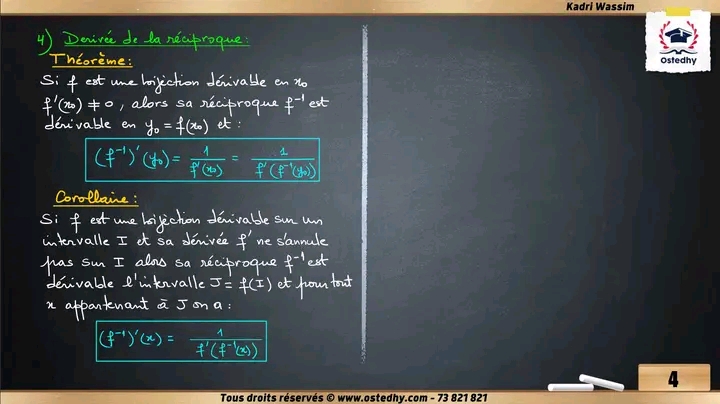 Kadri Wassim
Ostedhy
4) Derivée de la réciproque :
Théorème :
Si f est une bijection dérivable en x₀
f'(x₀) ≠ 0, alors sa réciproque f⁻¹ est
dérivable en y₀ = f(x₀) et :
(f⁻¹)'(y₀) = 1/f'(x₀) = 1/f'(f⁻¹(y₀))
Corollaire :
Si f est une bijection dérivable sur un
intervalle I et sa dérivée f' ne s'annule
pas sur I alors sa réciproque f⁻¹ est
dérivable l'intervalle J = f(I) et pour tout
x appartenant à J on a :
(f⁻¹)'(x) = 1/f'(f⁻¹(x))
4
Tous droits réservés © www.ostedhy.com - 73 821 821